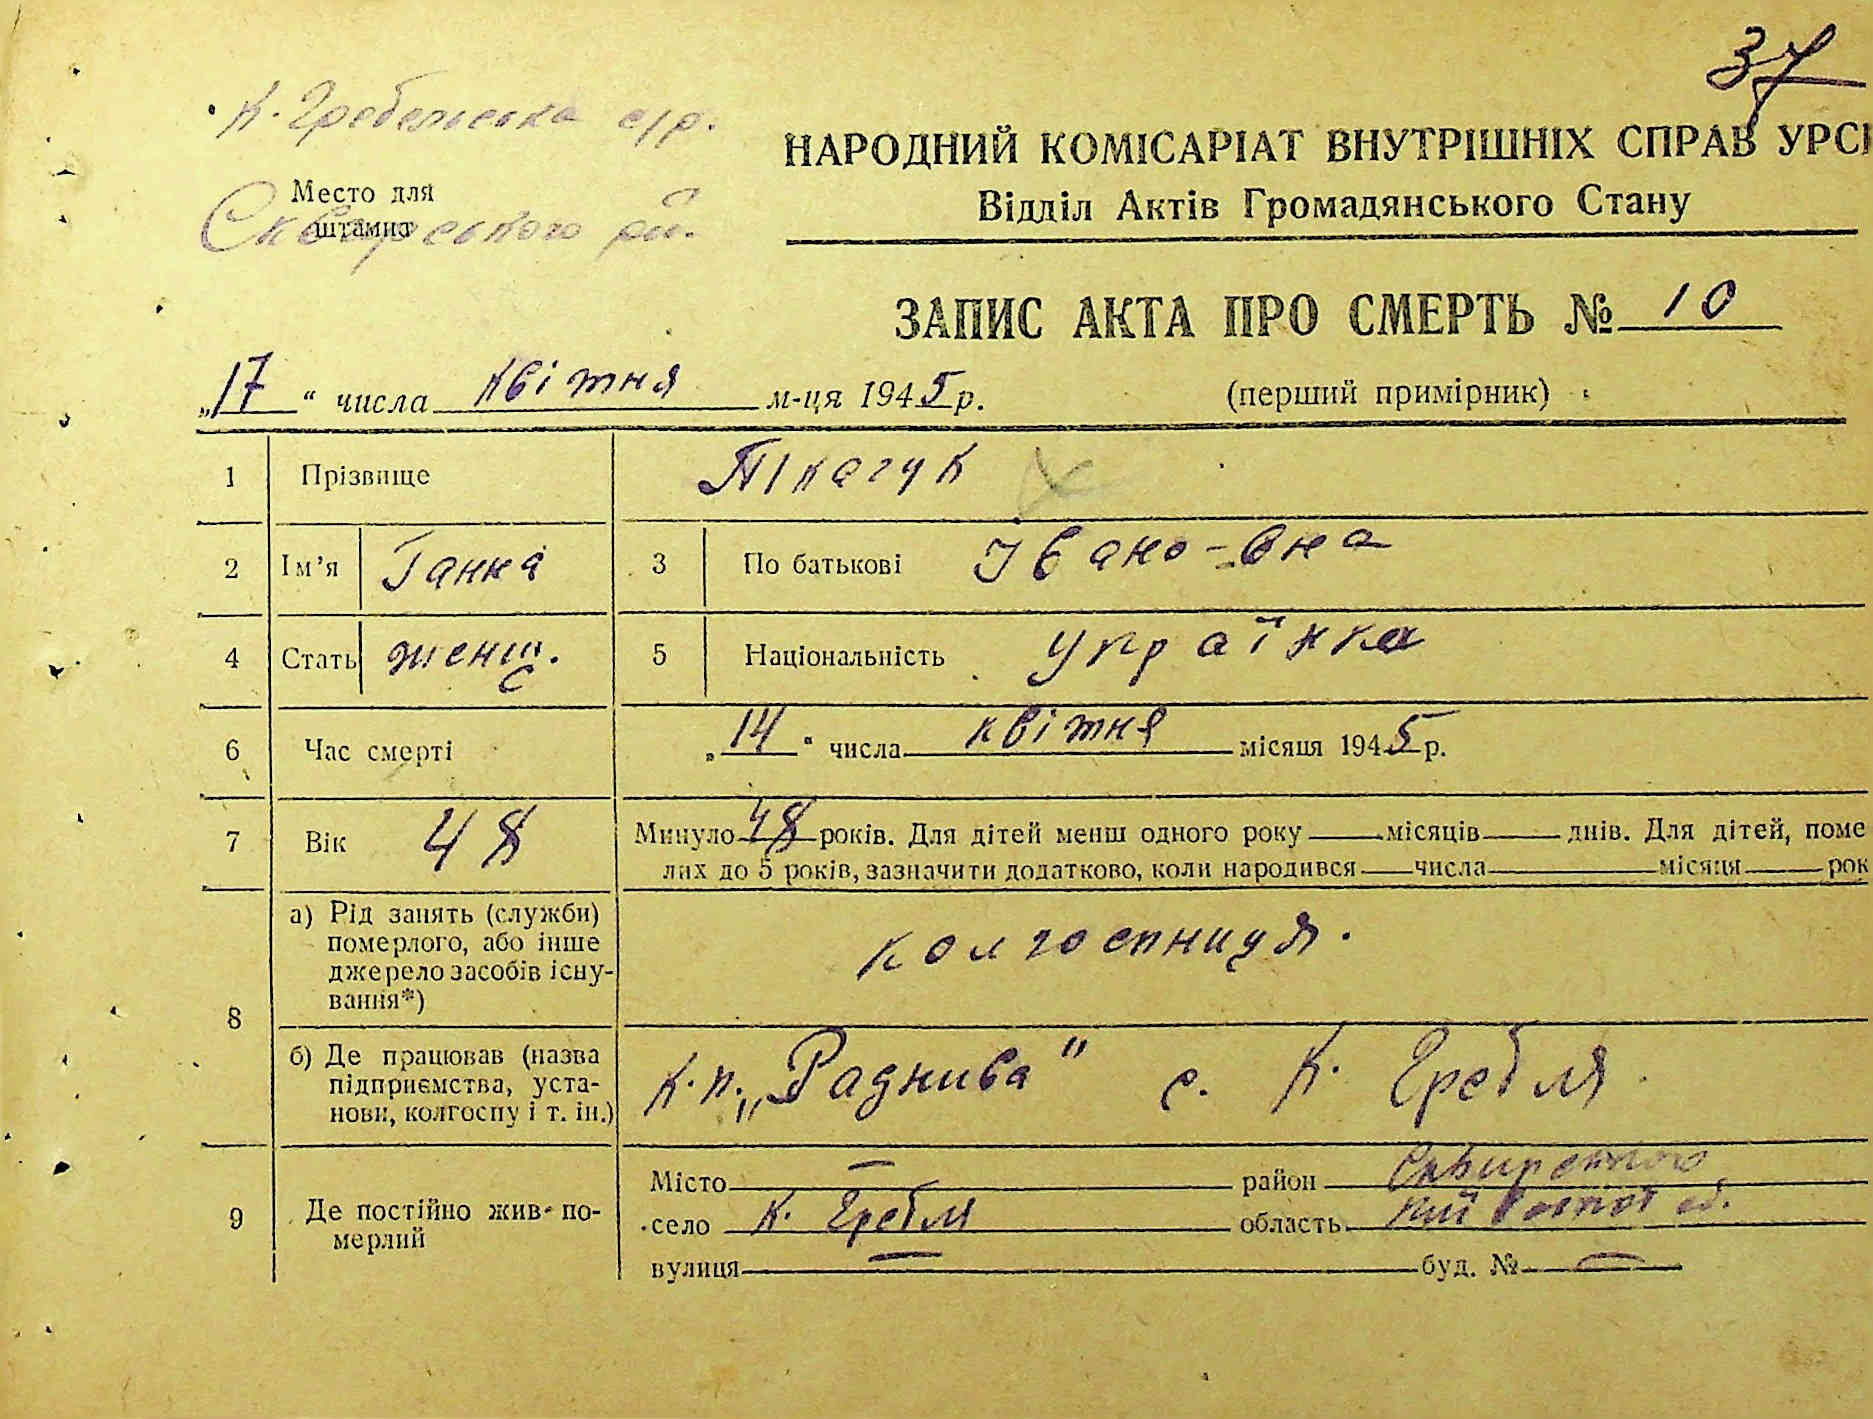 37
К. Гребельська с/р.
Сквирського рй.
Место для
штампа
НАРОДНИЙ КОМІСАРІАТ ВНУТРІШНІХ СПРАВ УРСР
Відділ Актів Громадянського Стану
ЗАПИС АКТА ПРО СМЕРТЬ № 10
„17“ числа квітня м-ця 1945 р. (перший примірник)
1 Прізвище
2 Ім’я Ганна 3 По батькові Івано-вна
4 Стать женщ. 5 Національність українка
6 Час смерті „14“ числа квітня місяця 1945 р.
7 Вік 48 Минуло 48 років. Для дітей менш одного року — місяців — днів. Для дітей, поме
лих до 5 років, зазначити додатково, коли народився — числа — місяця — рок
8 а) Рід занять (служби)
померлого, або інше
джерело засобів існу-
вання*)
колгоспниця.
б) Де працював (назва
підприємства, уста-
нови, колгоспу і т. ін.)
К.п. „Раднива“ с. К. Гребля.
9 Де постійно жив по-
мерлий
Місто — район Сквирського
село К. Гребля область Київської об.
вулиця — буд. № —